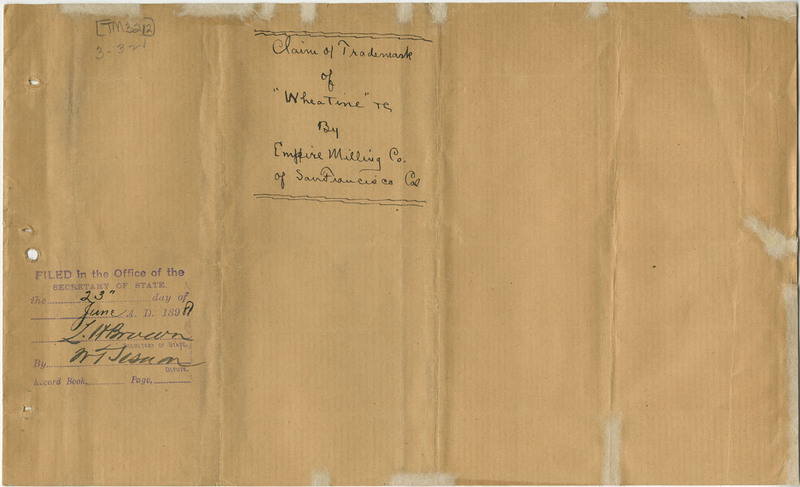 TM3212
3-321
Claim of Trademark
of
"Wheatine" &c
By
Empire Milling Co.
of San Francisco Cal
FILED in the Office of the
SECRETARY OF STATE.
the 23" day of
June A. D. 189
L. H Brown
SECRETARY OF STATE.
By W T Sesnon
DEPUTY.
Record Book, Page,